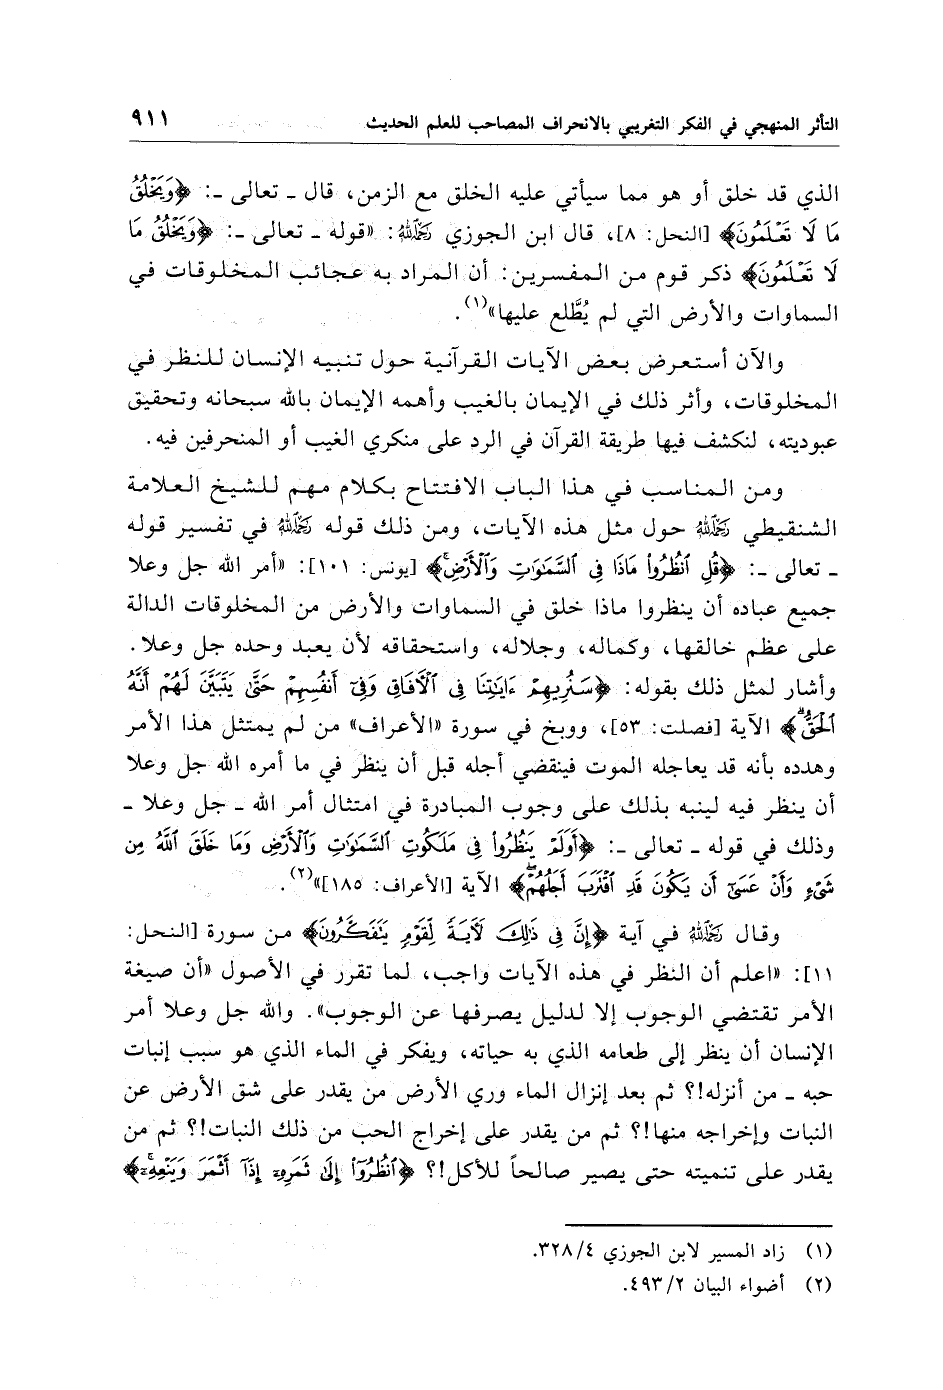 التأثر المنهجي في الفكر التغريبي بالانحراف المصاحب للعلم الحديث ٩١١
الذي قد خلق أو هو مما سيأتي عليه الخلق مع الزمن، قال ـ تعالى ـ: ﴿وَيَخْلُقُ
مَا لَا تَعْلَمُونَ﴾ [النحل: ٨]، قال ابن الجوزي رَحِمَهُ اللهُ: «قوله ـ تعالى ـ: ﴿وَيَخْلُقُ مَا
لَا تَعْلَمُونَ﴾ ذكر قوم من المفسرين: أن المراد به عجائب المخلوقات في
السماوات والأرض التي لم يُطَّلع عليها»(١).
والآن أستعرض بعض الآيات القرآنية حول تنبيه الإنسان للنظر في
المخلوقات، وأثر ذلك في الإيمان بالغيب وأهمه الإيمان بالله سبحانه وتحقيق
عبوديته، لنكشف فيها طريقة القرآن في الرد على منكري الغيب أو المنحرفين فيه.
ومن المناسب في هذا الباب الافتتاح بكلام مهم للشيخ العلامة
الشنقيطي رَحِمَهُ اللهُ حول مثل هذه الآيات، ومن ذلك قوله رَحِمَهُ اللهُ في تفسير قوله
ـ تعالى ـ: ﴿قُلِ ٱنظُرُوا۟ مَاذَا فِى ٱلسَّمَـٰوَٰتِ وَٱلْأَرْضِ ۚ﴾ [يونس: ١٠١]: «أمر الله جل وعلا
جميع عباده أن ينظروا ماذا خلق في السماوات والأرض من المخلوقات الدالة
على عظم خالقها، وكماله، وجلاله، واستحقاقه لأن يعبد وحده جل وعلا.
وأشار لمثل ذلك بقوله: ﴿سَنُرِيهِمْ ءَايَـٰتِنَا فِى ٱلْـَٔافَاقِ وَفِىٓ أَنفُسِهِمْ حَتَّىٰ يَتَبَيَّنَ لَهُمْ أَنَّهُ
ٱلْحَقُّ ۗ﴾ الآية [فصلت: ٥٣]، ووبخ في سورة «الأعراف» من لم يمتثل هذا الأمر
وهدده بأنه قد يعاجله الموت فينقضي أجله قبل أن ينظر في ما أمره الله جل وعلا
أن ينظر فيه لينبه بذلك على وجوب المبادرة في امتثال أمر الله ـ جل وعلا ـ
وذلك في قوله ـ تعالى ـ: ﴿أَوَلَمْ يَنظُرُوا۟ فِى مَلَكُوتِ ٱلسَّمَـٰوَٰتِ وَٱلْأَرْضِ وَمَا خَلَقَ ٱللَّهُ مِن
شَىْءٍ وَأَنْ عَسَىٰٓ أَن يَكُونَ قَدِ ٱقْتَرَبَ أَجَلُهُمْ ۖ﴾ الآية [الأعراف: ١٨٥]»(٢).
وقال رَحِمَهُ اللهُ في آية ﴿إِنَّ فِى ذَٰلِكَ لَـَٔايَةً لِّقَوْمٍ يَتَفَكَّرُونَ﴾ من سورة [النحل:
١١]: «اعلم أن النظر في هذه الآيات واجب، لما تقرر في الأصول «أن صيغة
الأمر تقتضي الوجوب إلا لدليل يصرفها عن الوجوب». والله جل وعلا أمر
الإنسان أن ينظر إلى طعامه الذي به حياته، ويفكر في الماء الذي هو سبب إنبات
حبه ـ من أنزله!؟ ثم بعد إنزال الماء وري الأرض من يقدر على شق الأرض عن
النبات وإخراجه منها!؟ ثم من يقدر على إخراج الحب من ذلك النبات!؟ ثم من
يقدر على تنميته حتى يصير صالحاً للأكل!؟ ﴿ٱنظُرُوٓا۟ إِلَىٰ ثَمَرِهِۦٓ إِذَآ أَثْمَرَ وَيَنْعِهِۦٓ ۚ﴾
(١) زاد المسير لابن الجوزي ٤/ ٣٢٨.
(٢) أضواء البيان ٢/ ٤٩٣.